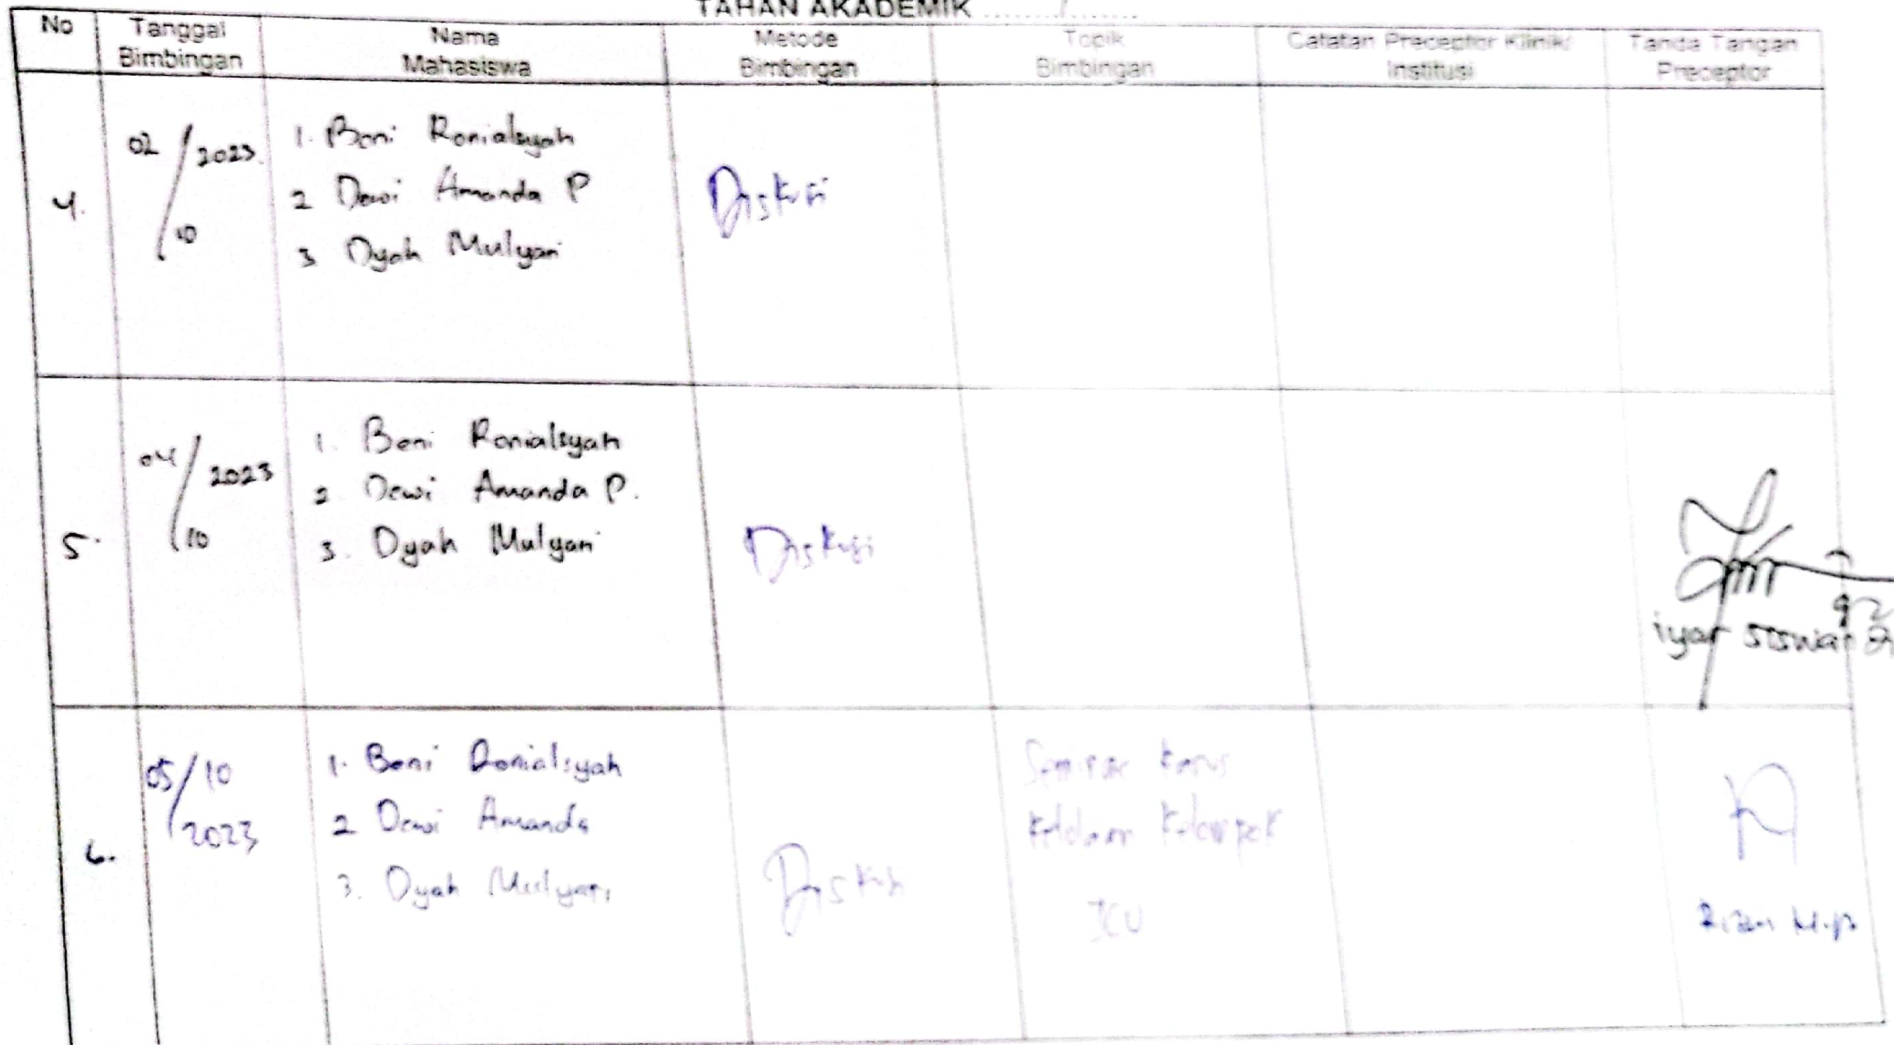 TAHAN AKADEMIK ......../........
No
Tanggal
Bimbingan
Nama
Mahasiswa
Metode
Bimbingan
Topik
Bimbingan
Catatan Preceptor Klinik/
Institusi
Tanda Tangan
Preceptor
4.
02/10/2023
1. Beni Ronialsyah
2 Dewi Amanda P
3 Dyah Mulyari
Diskusi
5.
04/10/2023
1. Beni Ronialsyah
2. Dewi Amanda P.
3. Dyah Mulyari
Diskusi
iyar siswandi
6.
05/10
2023
1. Beni Ronialsyah
2 Dewi Amanda
3. Dyah Mulyari
Diskusi
Seminar Kasus
Kelolaan Kelompok
ICU